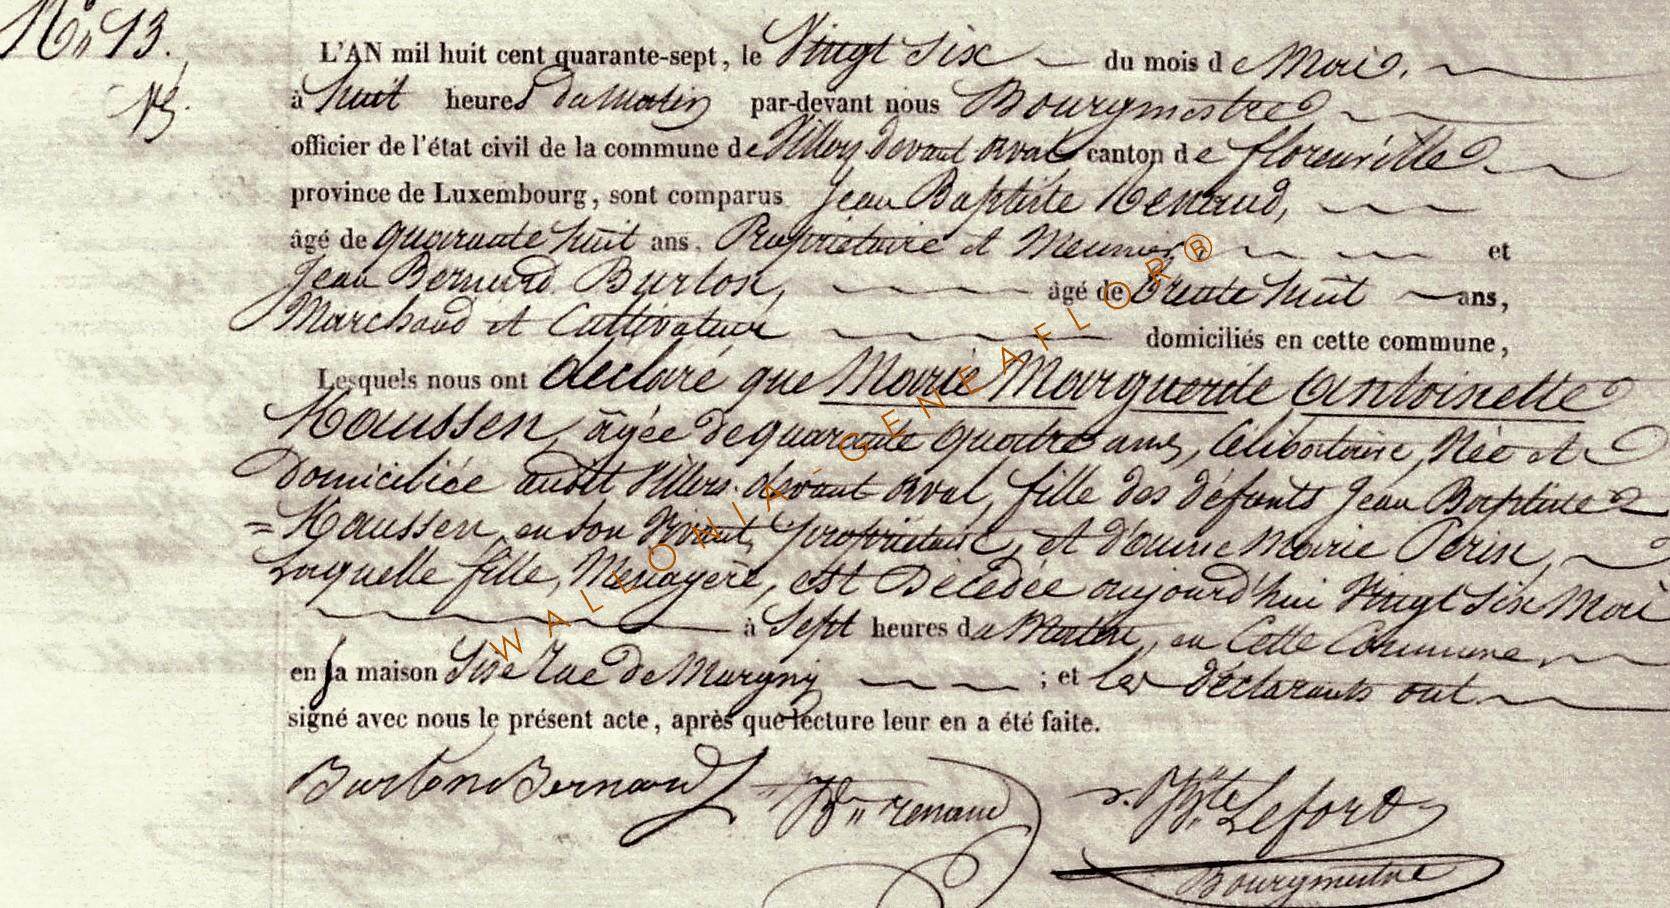 N° 13.
L'AN mil huit cent quarante-sept, le Vingt Six du mois de Mai,
à huit heures du Matin par-devant nous Bourgmestre
officier de l'état civil de la commune de Villers devant orval canton de florenville
province de Luxembourg, sont comparus Jean Baptiste Renaud,
âgé de quarante huit ans, Propriétaire et Meunier, et
Jean Bernard Burton, âgé de trente huit ans,
Marchand et Cultivateur domiciliés en cette commune,
Lesquels nous ont déclaré que Marie Marguerite Antoinette
Haussen, âgée de quarante quatre ans, Célibataire, Née et
Domiciliée audit Villers devant orval, fille des défunts Jean Baptiste
= Haussen, en son Vivant, propriétaire, et d'anne Marie Perin,
Laquelle fille, Menagère, est Décedée aujourd'hui Vingt Six Mai
à Sept heures du Matin, en Cette Commune,
en sa maison Sise rue de Margny ; et les déclarants ont
signé avec nous le présent acte, après que lecture leur en a été faite.
Burton Bernard
renaud
Lefort
Bourgmestre
WALLONIA-GENEAFLOR®